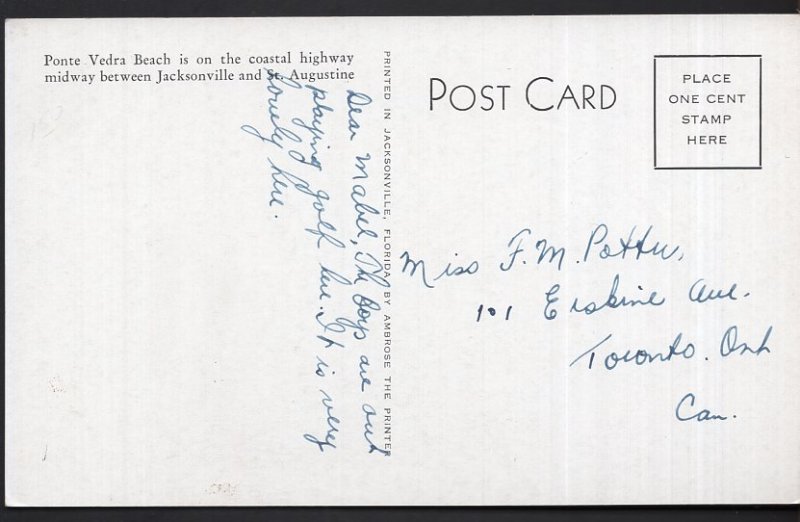 Ponte Vedra Beach is on the coastal highway
midway between Jacksonville and St. Augustine
Dear Mabel, The boys are out
playing golf here. It is very
lonely here.
PRINTED IN JACKSONVILLE, FLORIDA, BY AMBROSE THE PRINTER
POST CARD
PLACE
ONE CENT
STAMP
HERE
Miss F. M. Potter,
101 Erskine Ave.
Toronto. Ont
Can.